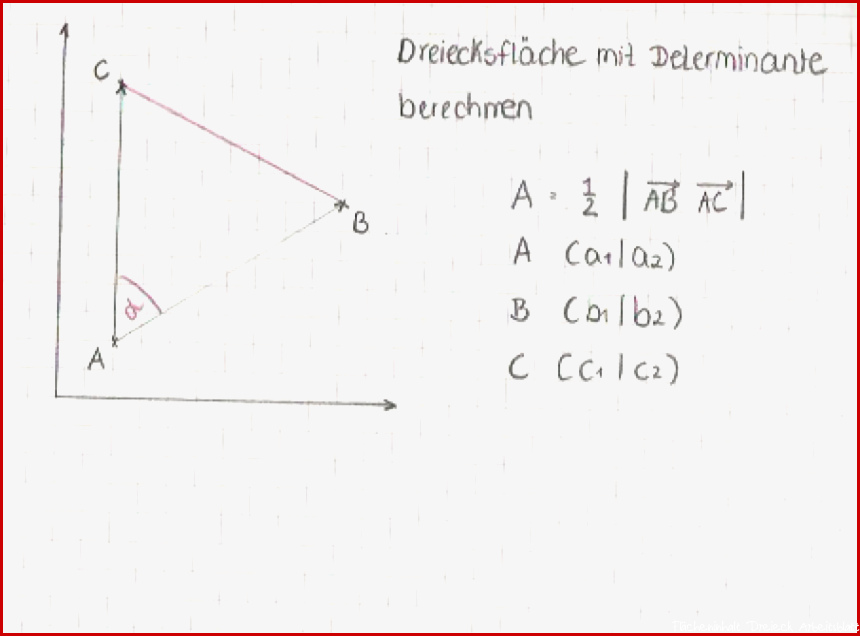 Dreiecksfläche mit Determinante
berechnen
C
A = 1/2 | AB AC |
B
A (a1|a2)
α
B (b1|b2)
A
C (c1|c2)